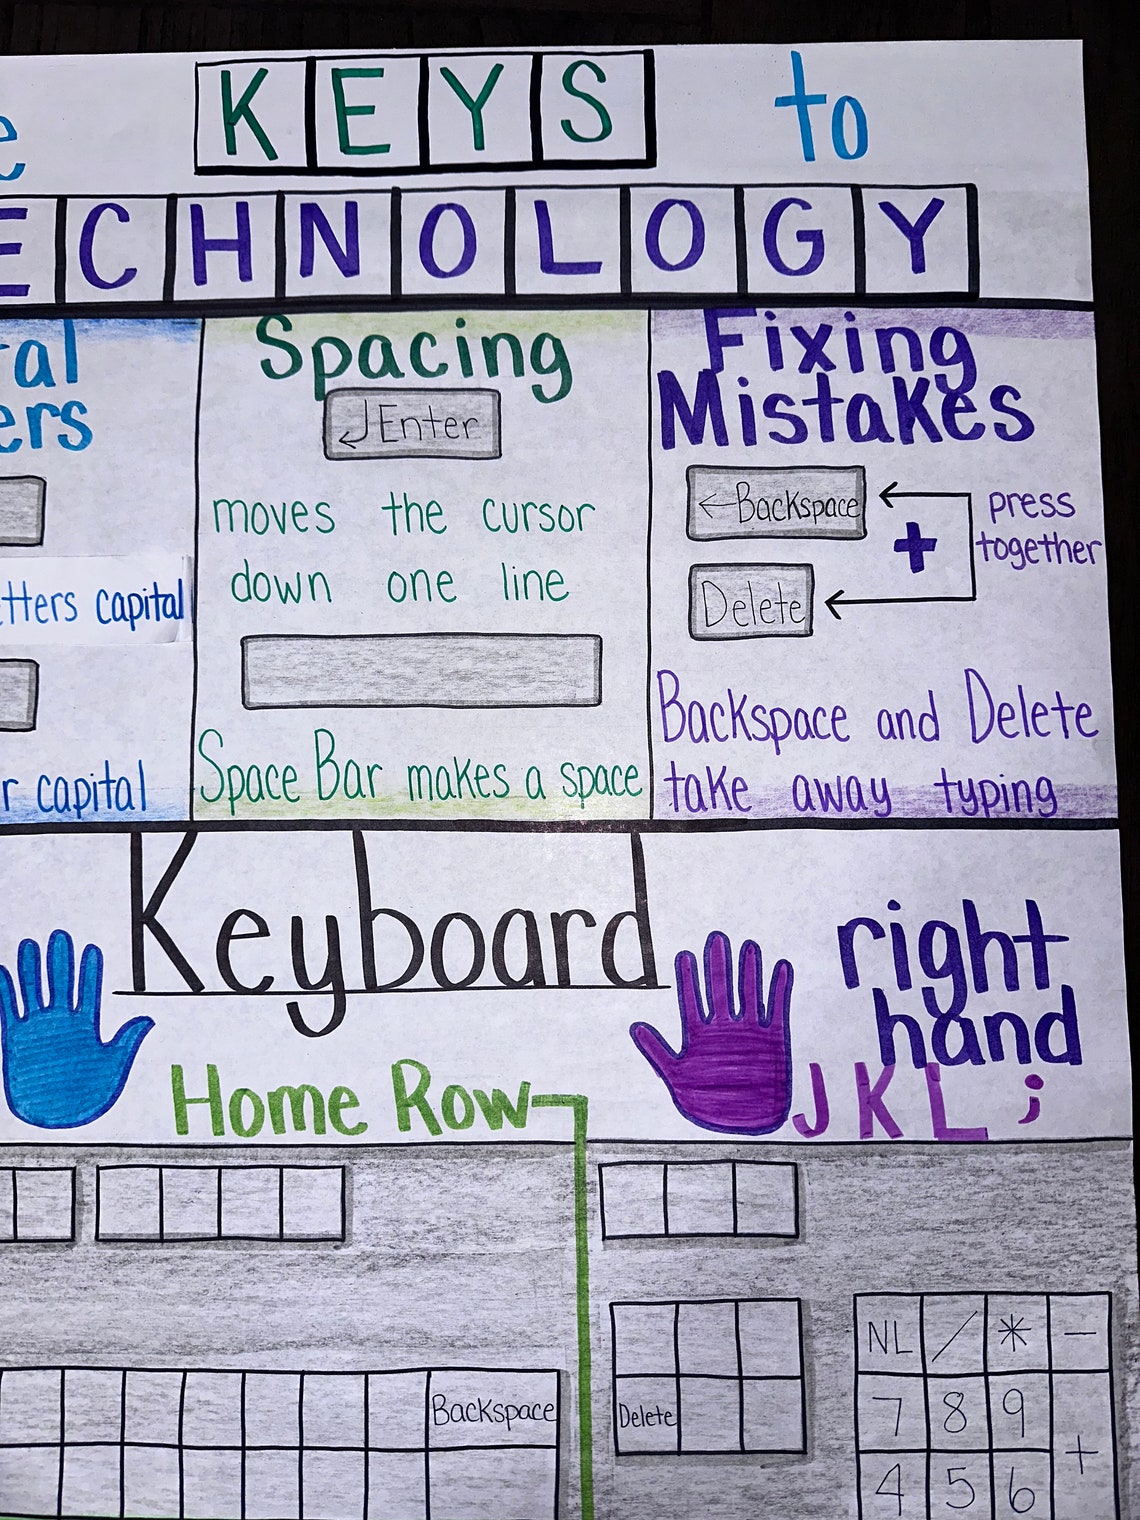 KEYS to
ECHNOLOGY
Spacing
Enter
moves the cursor
down one line
Space Bar makes a space
Fixing
Mistakes
Backspace
+
Delete
press
together
Backspace and Delete
take away typing
tters capital
r capital
Keyboard
Home Row
right
hand
JKL;
Backspace
Delete
NL / * -
7 8 9
+
4 5 6